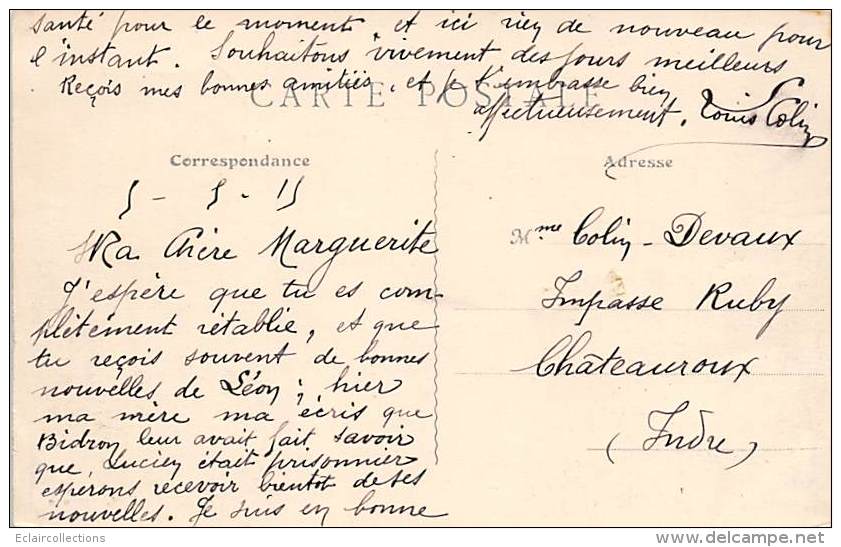 santé pour le moment et ici rien de nouveau pour
l'instant. Souhaitons vivement des jours meilleurs
Reçois mes bonnes amitiés, et je t'embrasse bien
affectueusement. Louis Colin
CARTE POSTALE
Correspondance
Adresse
5 - 5 - 15
Ma Chère Marguerite
J'espère que tu es com-
plètement rétablie, et que
tu reçois souvent de bonnes
nouvelles de Léon ; hier
ma mère ma écris que
Bidron leur avait fait savoir
que Lucien était prisonnier
esperons recevoir bientot de ses
nouvelles. Je suis en bonne
Mme Colin - Devaux
Impasse Ruby
Châteauroux
(Indre)
Eclaircollections
www.delcampe.net